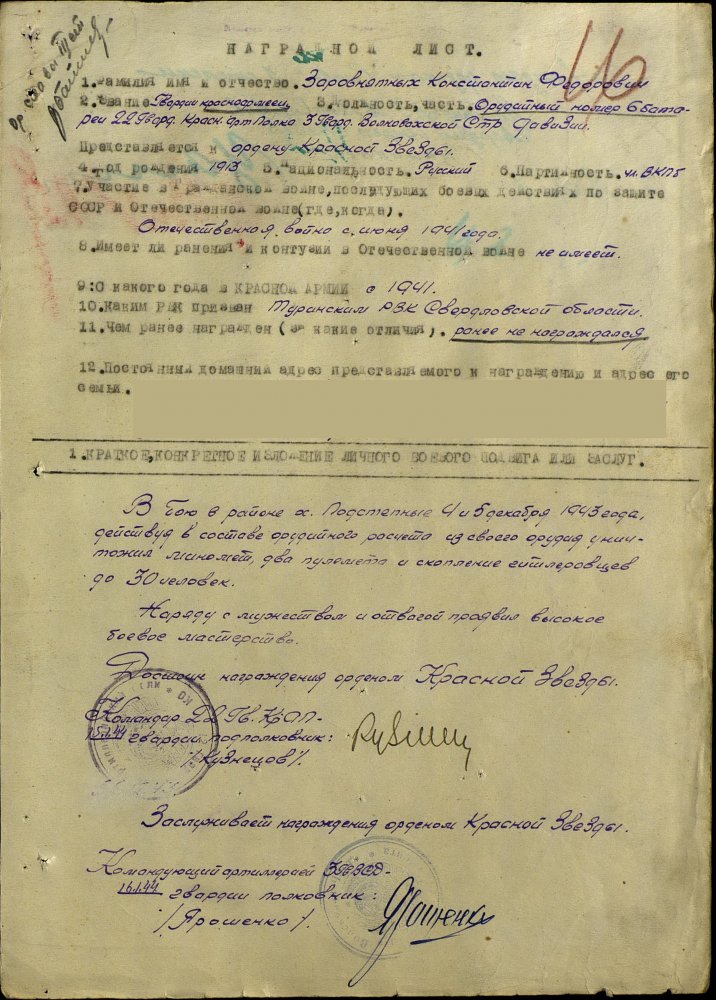 46
НАГРАДНОЙ ЛИСТ.
1.Фамилия имя и отчество. Заровнятных Константин Федорович
2.Звание Гвардии красноармеец, 3.Должность, часть. Орудийный номер 6 бата-
реи 22 Гвард. Красн. Арт Полка 3 Гвард. Волновахской Стр Дивизии.
Представляется к ордену Красной Звезды.
4.Год рождения 1913 5.Национальность. Русский 6.Партийность. чл. ВКПб
7.Участие в гражданской войне, последующих боевых действиях по защите
СССР и Отечественной войне(где, когда).
Отечественная война с июня 1941 года.
8.Имеет ли ранения и контузии в Отечественной войне не имеет.
9:С какого года в КРАСНОЙ АРМИИ с 1941.
10.Каким РВК призван Туринским РВК Свердловской области.
11.Чем ранее награжден (за какие отличия). ранее не награждался
12.Постоянный домашний адрес представляемого к награждению и адрес его
семьи.
1.КРАТКОЕ, КОНКРЕТНОЕ ИЗЛОЖЕНИЕ ЛИЧНОГО БОЕВОГО ПОДВИГА ИЛИ ЗАСЛУГ.
В бою в районе х. Подстепные 4 и 5 декабря 1943 года,
действуя в составе орудийного расчета из своего орудия унич-
тожил миномет, два пулемета и скопление гитлеровцев
до 30 человек.
Наряду с мужеством и отвагой проявил высокое
боевое мастерство.
Достоин награждения орденом Красной Звезды.
Командир 22 Гв. КАП-
15.1.44 гвардии подполковник:
/Кузнецов/.
Заслуживает награждения орденом Красной Звезды.
Командующий артиллерией 3ГВСД-
16.1.44 гвардии полковник:
/Ярошенко/.